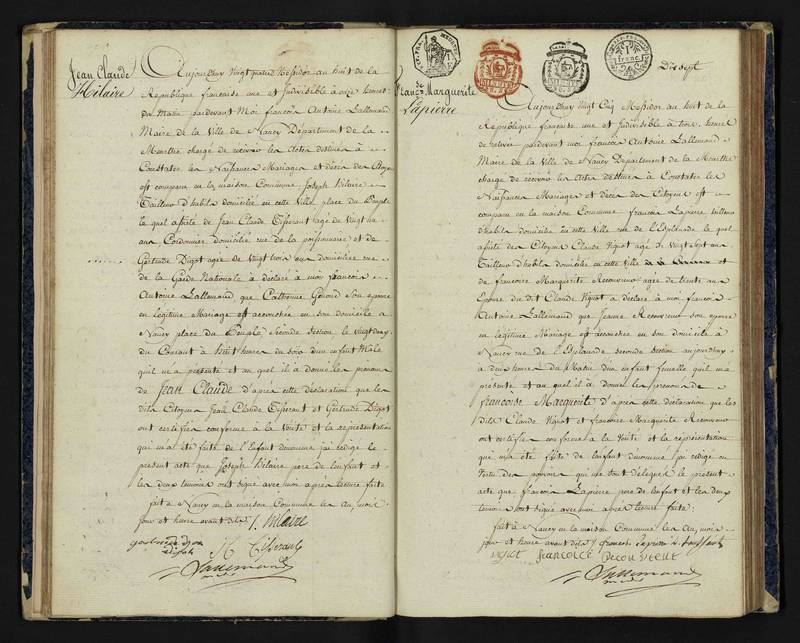 Jean Claude
Hilaire
Aujourdhuy Vingt quatre Messidor an huit de la
Republique française une et Indivisible à onze heures
du Matin pardevant Moi françois Antoine Lallemand
Maire de la Ville de Nancy Département de la
Meurthe chargé de recevoir les Actes destinés à
Constater les Naissances Mariages et décès des Citoyens
est comparu en la maison Commune Joseph Hilaire
Tailleur d'habits domicilié en cette Ville place du Peuple
le quel assisté de Jean Claude Tisserant agé de vingt
ans Cordonnier domicilié rue de la poissonnerie et de
Gertrude Digot agée de Vingt trois ans domiciliée rue
de la Garde Nationale à déclaré à moi françois
Antoine Lallemand que Catherine son epouse
en légitime Mariage est accouchée en son domicile à
Nancy place du Peuple seconde section le vingt deux
du Courant à huit heures du soir d'un enfant Male
quil m'a présenté et au quel il a donné les prenoms
de Jean Claude d'après cette déclaration que les
dits Citoyens Jean Claude Tisserant et Gertrude Digot
ont certifiés conforme à la Vérité et la représentation
qui m'a été faite de l'Enfant denommé jai redigé le
présent acte que Joseph Hilaire pere de lenfant et
les deux témoins ont signé avec moi après lecture faite
fait à Nancy en la maison Commune les An, mois
jour et heure avant dits J. hilaire
Tisserant
Lallemand
maire
Dix sept
1
franc
Franc.se Marguerite
Lapierre
Aujourdhuy Vingt Cinq Messidor an huit de la
République française une et Indivisible à onze heures
de relevée pardevant moi françois Antoine Lallemand
Maire de la Ville de Nancy Département de la Meurthe
chargé de recevoir les Actes destinés à Constater les
Naissances Mariages et décès des Citoyens est
comparu en la maison Commune françois Lapierre tailleur
d'habits domicilié en cette Ville rue de l'Esplanade le quel
assisté des Citoyens Claude Vignot agé de Vingt sept ans
Tailleur d'habits domicilié en cette Ville et
de francoise Marguerite Recouvreur agée de trente ans
Epouse du dit Claude Vignot à déclaré à moi françois
Antoine Lallemand que Jeanne Recouvreur son epouse
en légitime Mariage est accouchée en son domicile à
Nancy rue de l'Esplanade seconde section aujourdhuy
à deux heures du Matin d'un enfant femelle quil m'a
présenté et au quel il a donné les prenoms de
francoise Marguerite d'après cette déclaration que les
dits Claude Vignot et francoise Marguerite Recouvreur
ont certifiés conforme à la Vérité et la réprésentation
qui m'a été faite de lenfant denommé jai redigé en
Vertu des pouvoirs qui me sont délégués le présent
acte que françois Lapierre pere de lenfant et les deux
temoins ont signé avec moi après lecture faite:
fait à Nancy en la maison Commune les An, mois
jour et heure avant dits francois Lapierre
francoise Recouvreur
Lallemand
maire